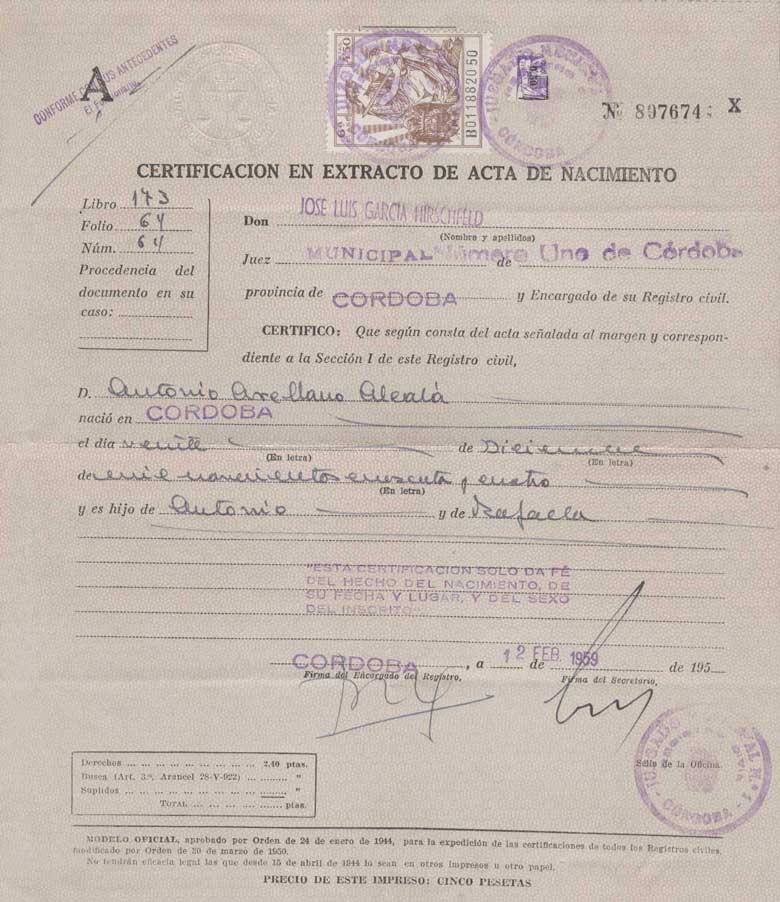 CONFORME CON SUS ANTEDECENTES
A
6ª
50
B0118820 50
JUZGADO MUNICIPAL
CÓRDOBA
Nº 807674 X
CERTIFICACION EN EXTRACTO DE ACTA DE NACIMIENTO
Libro 173
Folio 64
Núm. 64
Procedencia del
documento en su
caso:
Don JOSE LUIS GARCIA HIRSCHFELD
(Nombre y apellidos)
Juez MUNICIPAL Número Uno de Córdoba
de
provincia de CORDOBA y Encargado de su Registro civil.
CERTIFICO: Que según consta del acta señalada al margen y correspon-
diente a la Sección I de este Registro civil,
D. Antonio Arellano Alcalá
nació en CORDOBA
el día veinte de Diciembre
(En letra) (En letra)
de mil novecientos cuarenta y cuatro
(En letra)
y es hijo de Antonio y de Rafaela
"ESTA CERTIFICACION SOLO DA FÉ
DEL HECHO DEL NACIMIENTO, DE
SU FECHA Y LUGAR, Y DEL SEXO
DEL INSCRITO"
CORDOBA, a 12 de FEB. 1959 de 195
Firma del Encargado del Registro. Firma del Secretario,
JUZGADO MUNICIPAL N.º 1
CÓRDOBA
Sello de la Oficina.
Derechos ... 2,40 ptas.
Busca (Art. 3.º, Arancel 28-V-922) ... "
Suplidos ... "
TOTAL ... ptas.
MODELO OFICIAL, aprobado por Orden de 24 de enero de 1944, para la expedición de las certificaciones de todos los Registros civiles,
modificado por Orden de 30 de marzo de 1950.
No tendrán eficacia legal las que desde 15 de abril de 1944 lo sean en otros impresos u otro papel.
PRECIO DE ESTE IMPRESO: CINCO PESETAS